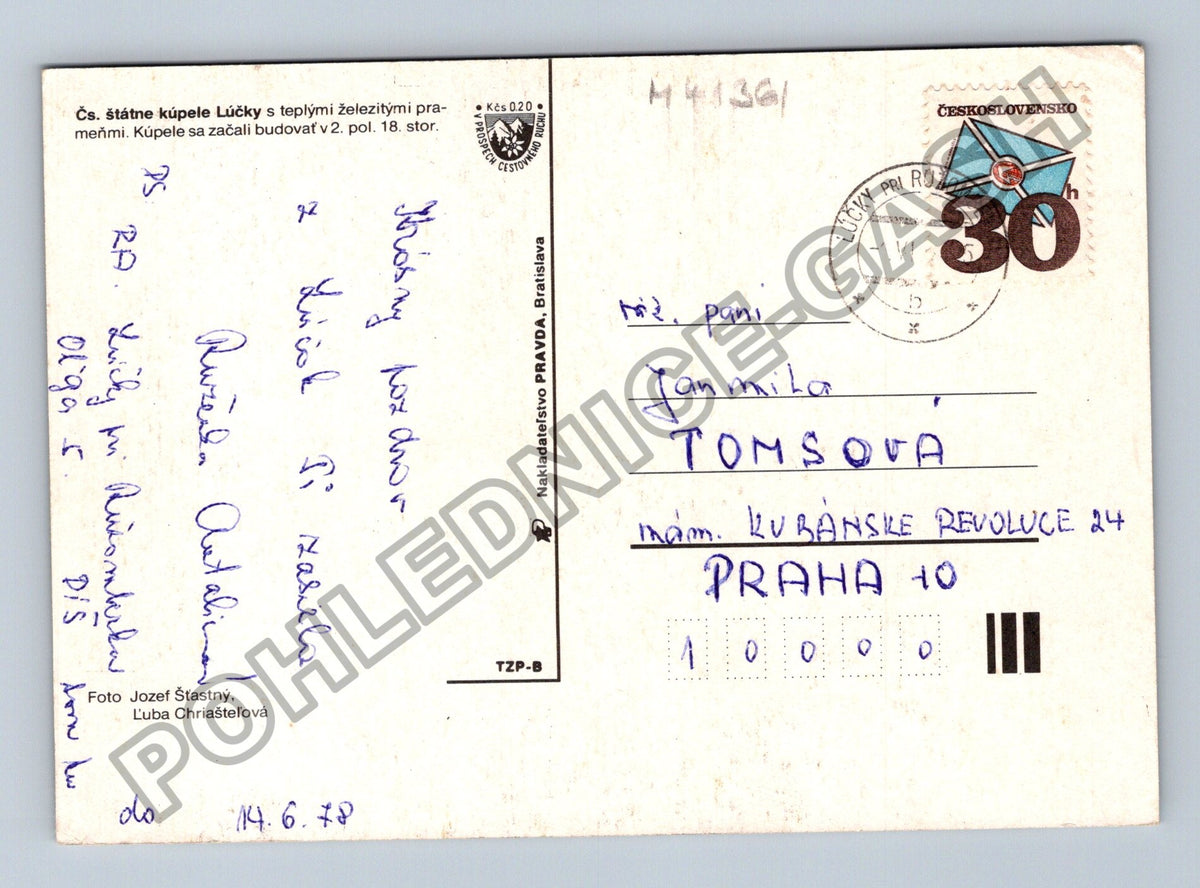 Čs. štátne kúpele Lúčky s teplými železitými pra-
meňmi. Kúpele sa začali budovať v 2. pol. 18. stor.
• Kčs 0.20 •
V PROSPECH CESTOVNÉHO RUCHU
Krásny pozdrav
z Lúčok Ti zasiela
Ruženka
PS
RD. Lúčky pri
Oľga
do 14. 6. 78
Foto Jozef Šťastný,
Ľuba Chriašteľová
TZP-B
Nakladateľstvo PRAVDA, Bratislava
M 41361
ČESKOSLOVENSKO
30 h
LÚČKY PRI RUŽ
b
váž. pani
Jarmila
TOMSOVÁ
nám. KUBÁNSKE REVOLUCE 24
PRAHA 10
1 0 0 0 0
POHLEDNICE-GASH